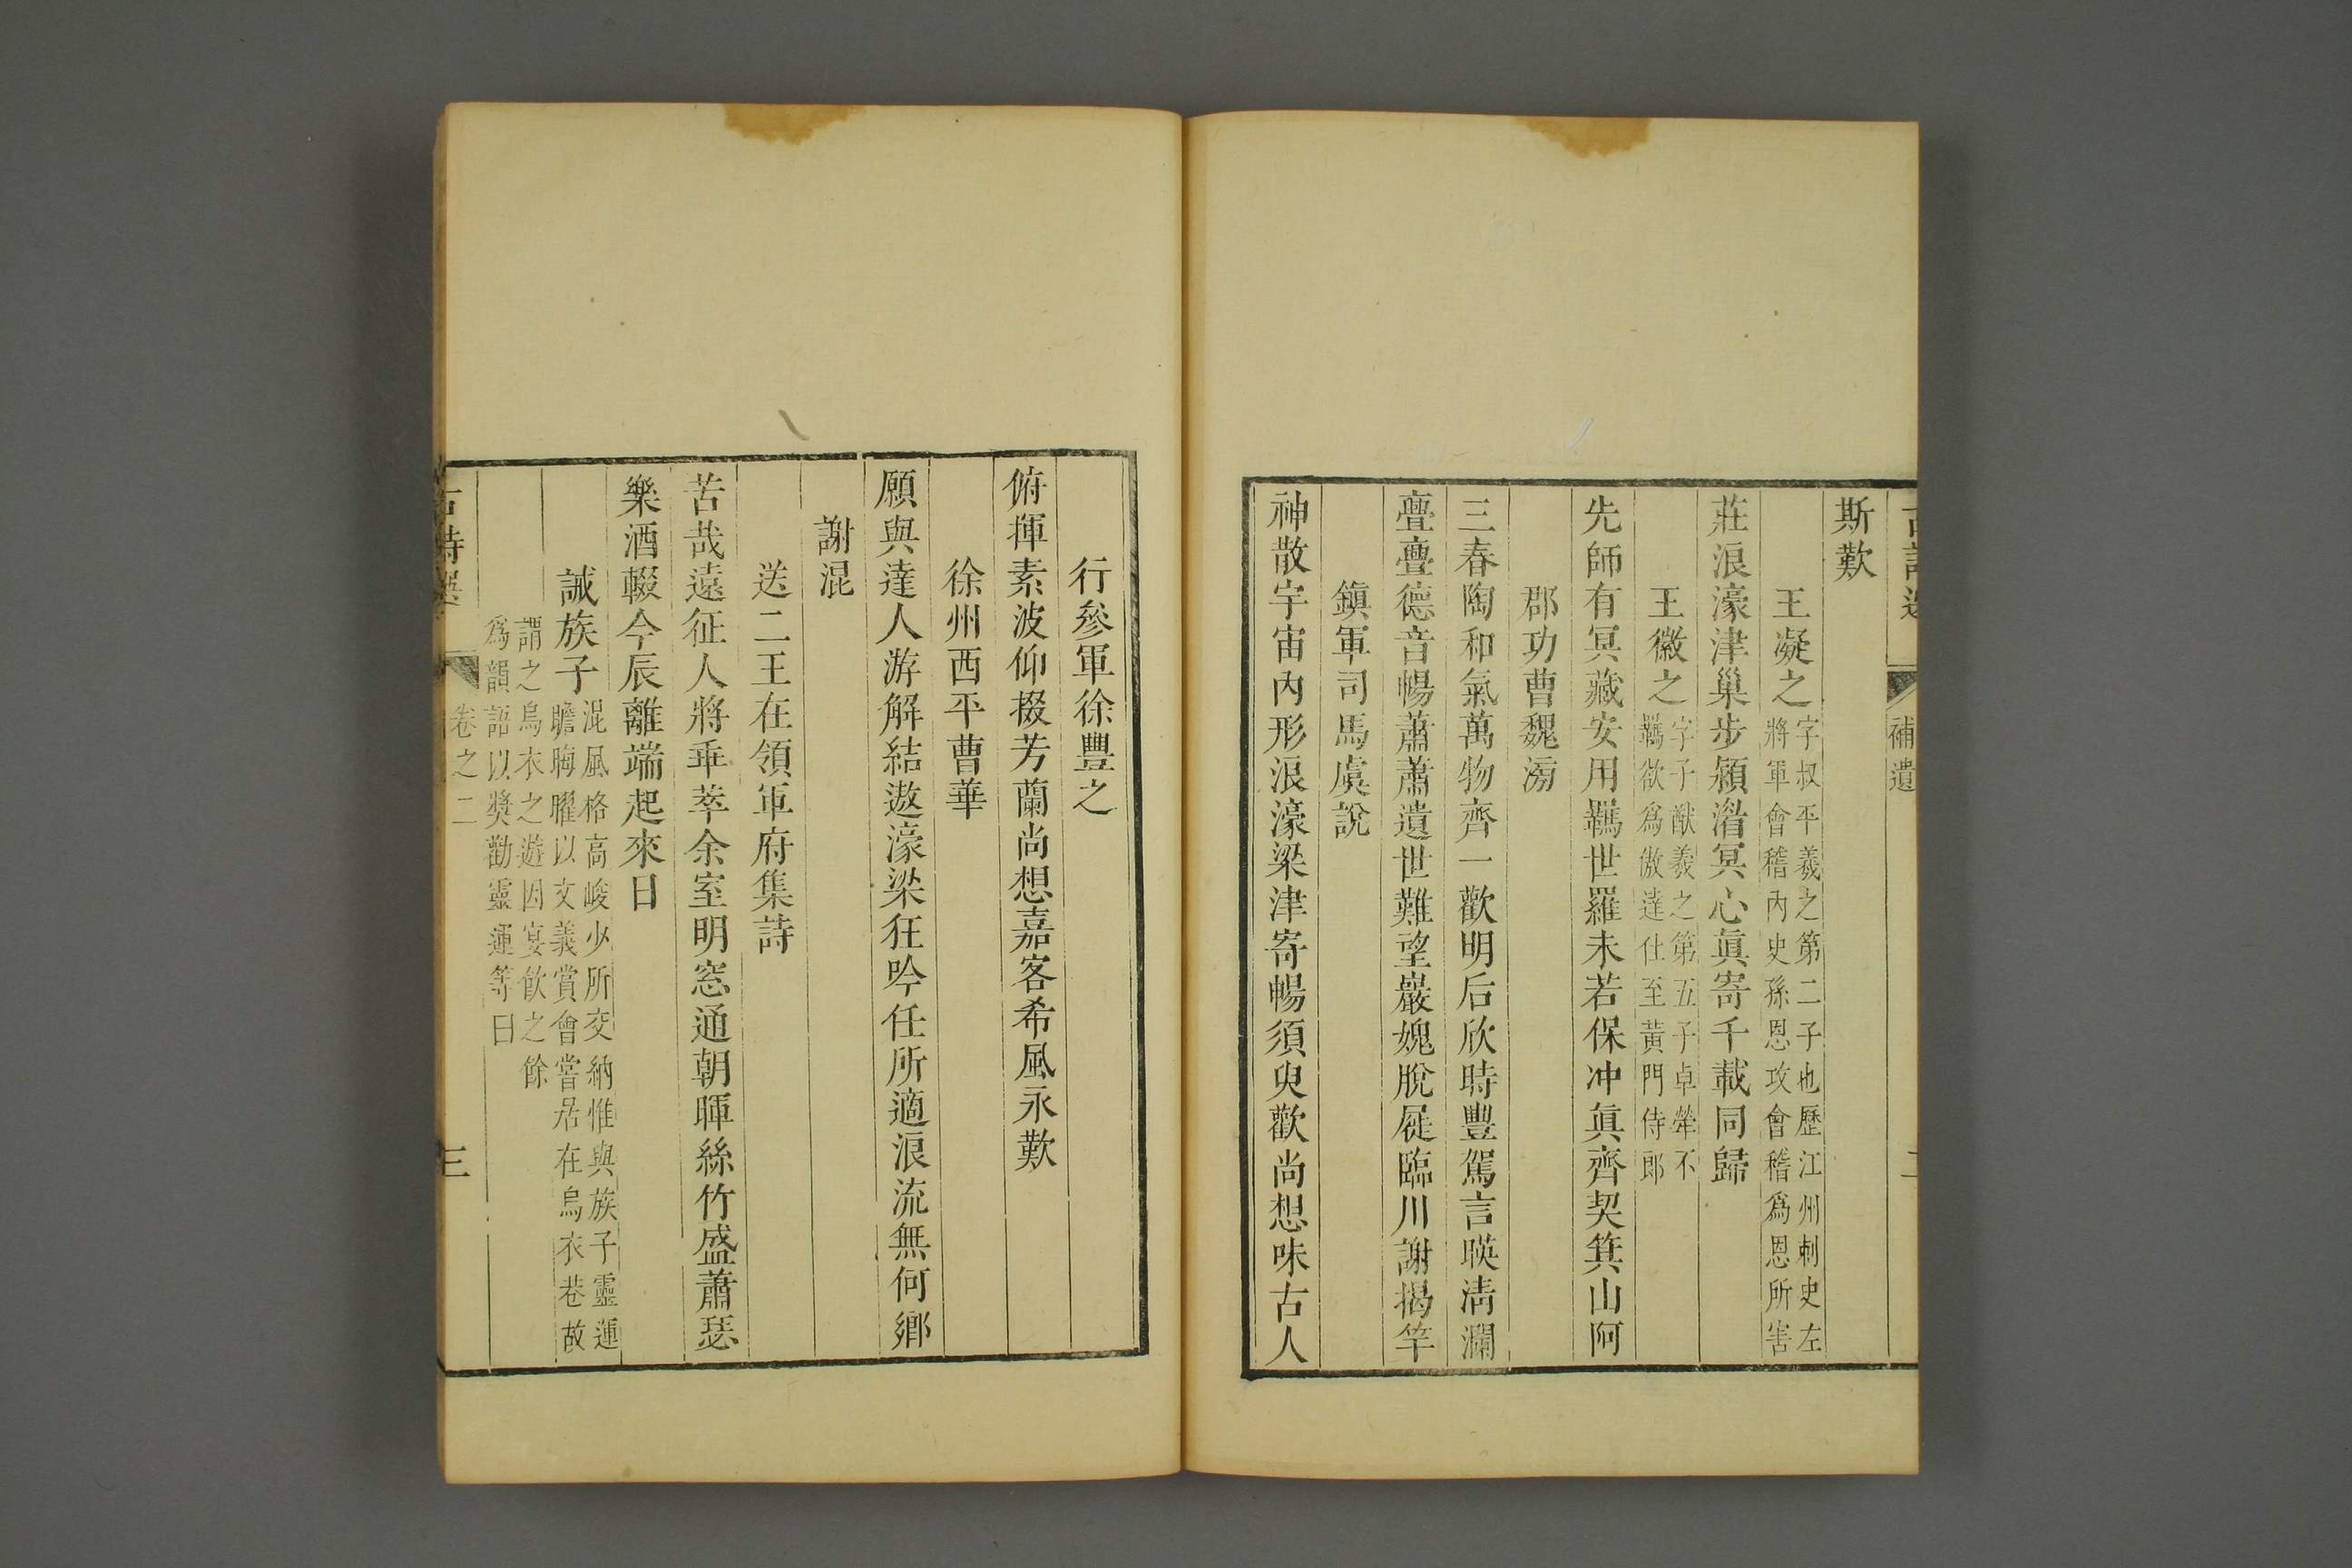 補遺
斯歎
王凝之 字叔平羲之第二子也歷江州刺史左
將軍會稽內史孫恩攻會稽爲恩所害
莊浪濠津巢步潁湽冥心眞寄千載同歸
王徽之 字子猷羲之第五子卓犖不
羈欲爲傲達仕至黃門侍郎
先師有冥藏安用羈世羅未若保冲眞齊契箕山阿
郡功曹魏滂
三春陶和氣萬物齊一歡明后欣時豐駕言暎淸瀾
亹亹德音暢蕭蕭遺世難望巖媿脫屣臨川謝揭竿
鎭軍司馬虞說
神散宇宙內形浪濠梁津寄暢須臾歡尚想味古人
行參軍徐豐之
俯揮素波仰掇芳蘭尚想嘉客希風永歎
徐州西平曹華
願與達人游解結遨濠梁狂吟任所適浪流無何鄉
謝混
送二王在領軍府集詩
苦哉遠征人將乖萃余室明窓通朝暉絲竹盛蕭瑟
樂酒輟今辰離端起來日
誡族子 混風格高峻少所交納惟與族子靈運
瞻晦曜以文義賞會嘗居在烏衣巷故
謂之烏衣之遊因宴飮之餘
爲韻語以獎勸靈運等曰
古詩選 卷之二 三